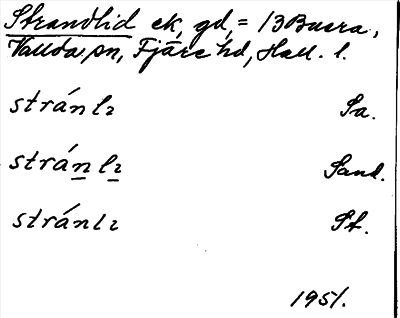 Strandlid ek, gd, = 13 Buera,
Vallda sn, Fjäre hd, Hall. l.
stránlı Sa.
stránlı Sand.
stránlı St.
1951.